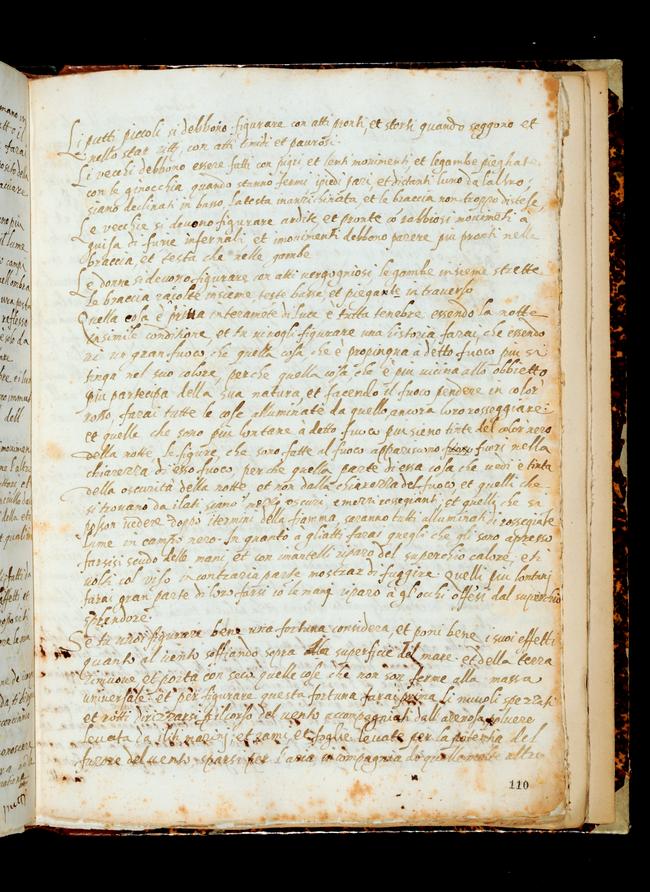 Li putti piccoli si debbono figurare con atti pronti, et storti quando seggono et
nello star ritti, con atti timidi et paurosi.
Li vecchi debbono essere fatti con pigri et lenti movimenti et le gambe pieghate
con le ginocchia quando stanno fermi i piedi pari, et distanti l'uno da l'altro,
siano declinati in basso, la testa inanzi chinata, et le braccia non troppo distese
Le vecchie si devono figurare ardite, et pronte co rabbiosi movimenti à
guisa di furie infernali et i movimenti debbono parere piu pronti nelle
braccia, et testa che nelle gambe
Le donne si devono figurare con atti vergogniosi le gambe insieme strette
le braccia racolte insieme teste basse, et piegante in traverso
Quella cosa è priva interamente di luce è tutta tenebre, essendo la notte
in simile conditione, et tu ni vogli figurare una historia farai, che essendo
vi un gran fuoco che quella cosa che è propinqua à detto fuoco piu si
tinga nel suo colore, perche quella cosa che è piu vicina allo obbietto
piu participa della sua natura, et facendo il fuoco pendere in color
rosso, farai tutte le cose alluminate da quello ancora loro rosseggiare:
et quelle che sono piu lontane à detto fuoco piu siano tinte del color nero
della notte, le figure, che sono fatte al fuoco apparischono fuori nella
chiarezza di esso fuoco perche quella parte di essa cosa che vedi è tinta
della oscurità della notte, et non dalla chiarezza del fuoco et quelli che
si trovano da i lati siano mezzi oscuri, e mezzi rossegianti, et quelli che si
posson vedere doppo i termini della fiamma, saranno tutti alluminati di rossegiante
lume in campo nero. In quanto a gli atti farai quegli che gli sono appresso
farsi scudo delle mani, et con i mantelli riparo del superchio calore, et i
volti col viso in contraria parte mostrar di fuggire: quelli piu lontani
farai gran parte di loro farsi co le mani riparo à gl'occhi offesi dal superchio
splendore
Se ti vuoi figurare bene una fortuna considera, et poni bene i suoi effetti
quanto al vento soffiando sopra alla superficie del mare et della terra
rimuove et porta con seco quelle cose che non son ferme alla massa
universale et per figurare questa fortuna farai prima li nuvoli spezzati
et rotti dirizzarsi p il corso del vento accompagniati dall'arenosa polvere
levata da i liti marini, et rami, et foglie levate per la potentia del
furore del vento sparsi per l'aria in compagnia di quelle molte altre
110